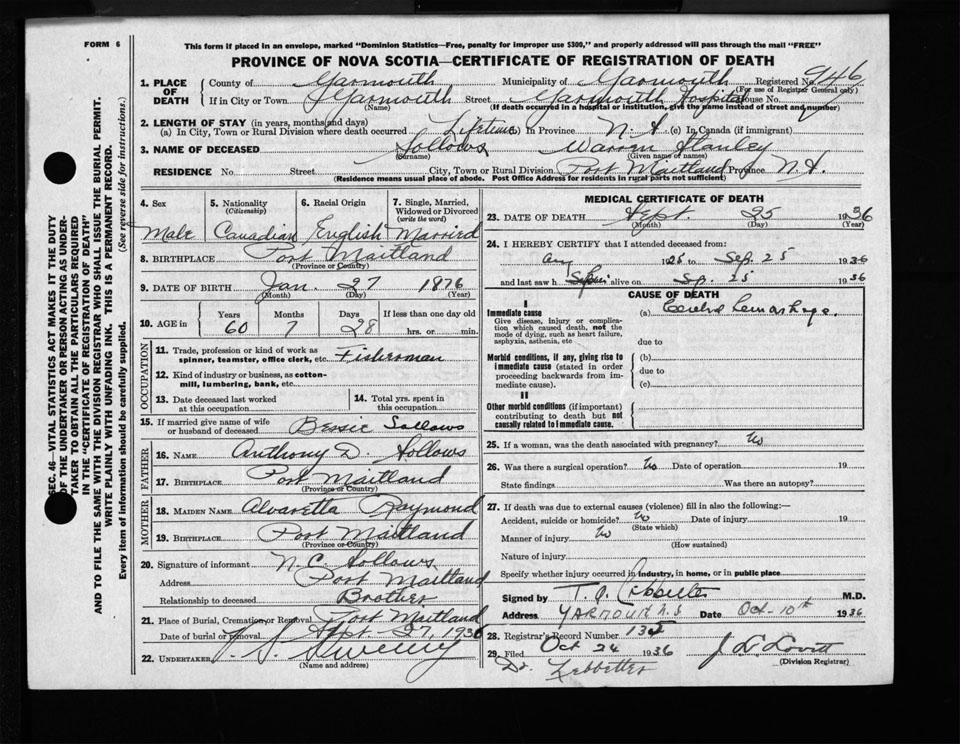 FORM 6
This form if placed in an envelope, marked "Dominion Statistics—Free, penalty for improper use $300," and properly addressed will pass through the mail "FREE"
PROVINCE OF NOVA SCOTIA—CERTIFICATE OF REGISTRATION OF DEATH
1. PLACE OF DEATH County of Yarmouth Municipality of Yarmouth Registered No. 9146
(For use of Registrar General only)
If in City or Town Yarmouth Street Yarmouth Hospital House No.
(If death occurred in a hospital or institution, give the name instead of street and number)
2. LENGTH OF STAY (in years, months and days)
(a) In City, Town or Rural Division where death occurred Lifetime (b) In Province N. S. (c) In Canada (if immigrant)
3. NAME OF DECEASED Sollows Warren Stanley
(Surname) (Given name or names)
RESIDENCE No. Street City, Town or Rural Division Port Maitland Province N.S.
(Residence means usual place of abode. Post Office Address for residents in rural parts not sufficient)
4. Sex Male
5. Nationality (Citizenship) Canadian
6. Racial Origin English
7. Single, Married, Widowed or Divorced (write the word) Married
8. BIRTHPLACE Port Maitland
(Province or Country)
9. DATE OF BIRTH Jan. 27 1876
(Month) (Day) (Year)
10. AGE in Years 60 Months 7 Days 28 If less than one day old hrs. or min.
OCCUPATION
11. Trade, profession or kind of work as spinner, teamster, office clerk, etc. Fisherman
12. Kind of industry or business, as cotton-mill, lumbering, bank, etc.
13. Date deceased last worked at this occupation
14. Total yrs. spent in this occupation
15. If married give name of wife or husband of deceased Bessie Sollows
FATHER
16. NAME Anthony D. Sollows
17. BIRTHPLACE Port Maitland
(Province or Country)
MOTHER
18. MAIDEN NAME Alvaretta Raymond
19. BIRTHPLACE Port Maitland
(Province or Country)
20. Signature of informant N. C. Sollows
Address Port Maitland
Relationship to deceased Brother
21. Place of Burial, Cremation or Removal Port Maitland
Date of burial or removal Sept. 27, 1936
22. UNDERTAKER J. S. Sweeny
(Name and address)
MEDICAL CERTIFICATE OF DEATH
23. DATE OF DEATH Sept. 25 1936
(Month) (Day) (Year)
24. I HEREBY CERTIFY that I attended deceased from:
to Sep. 25 1936
and last saw h alive on Sep. 25 1936
CAUSE OF DEATH
I
Immediate cause (a) Cerebral hemorrhage.
Give disease, injury or complication which caused death, not the mode of dying, such as heart failure, asphyxia, asthenia, etc
due to
Morbid conditions, if any, giving rise to immediate cause (stated in order proceeding backwards from immediate cause). (b)
due to
(c)
II
Other morbid conditions (if important) contributing to death but not causally related to immediate cause.
25. If a woman, was the death associated with pregnancy? No
26. Was there a surgical operation? No Date of operation 19
State findings Was there an autopsy?
27. If death was due to external causes (violence) fill in also the following:—
Accident, suicide or homicide? No Date of injury 19
(State which)
Manner of injury No
(How sustained)
Nature of injury
Specify whether injury occurred in industry, in home, or in public place
Signed by M.D.
Address YARMOUTH N.S Date Oct-10th 1936
28. Registrar's Record Number 135
29. Filed Oct 24 1936 J. L. Lovitt
(Division Registrar)
Dr. Lebbetter
SEC. 46—VITAL STATISTICS ACT MAKES IT THE DUTY
OF THE UNDERTAKER OR PERSON ACTING AS UNDER-
TAKER TO OBTAIN ALL THE PARTICULARS REQUIRED
IN THE "CERTIFICATE OF REGISTRATION OF DEATH"
AND TO FILE THE SAME WITH THE DIVISION REGISTRAR WHO SHALL ISSUE THE BURIAL PERMIT.
WRITE PLAINLY WITH UNFADING INK. THIS IS A PERMANENT RECORD.
Every item of information should be carefully supplied. (See reverse side for instructions.)